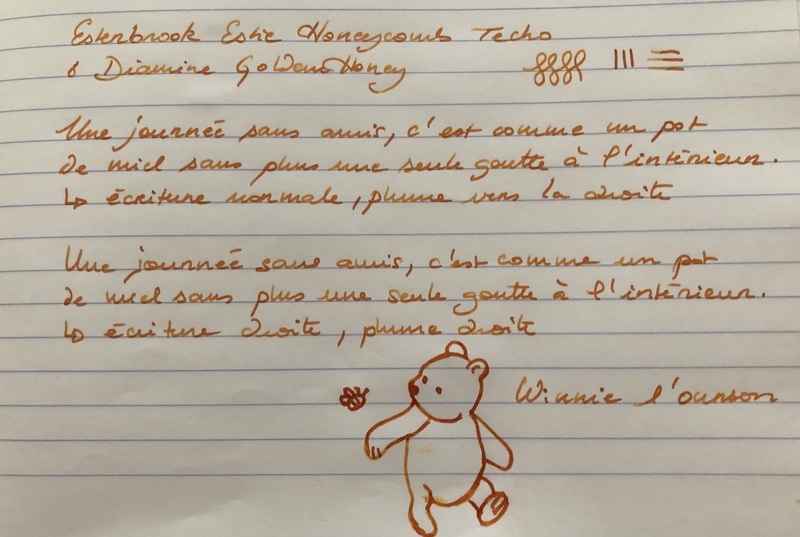 Esterbrook Estie Honeycomb Techo
& Diamine Golden Honey
Une journée sans amis, c'est comme un pot
de miel sans plus une seule goutte à l'intérieur.
↳ écriture normale, plume vers la droite
Une journée sans amis, c'est comme un pot
de miel sans plus une seule goutte à l'intérieur.
↳ écriture droite, plume droite
Winnie l'ourson